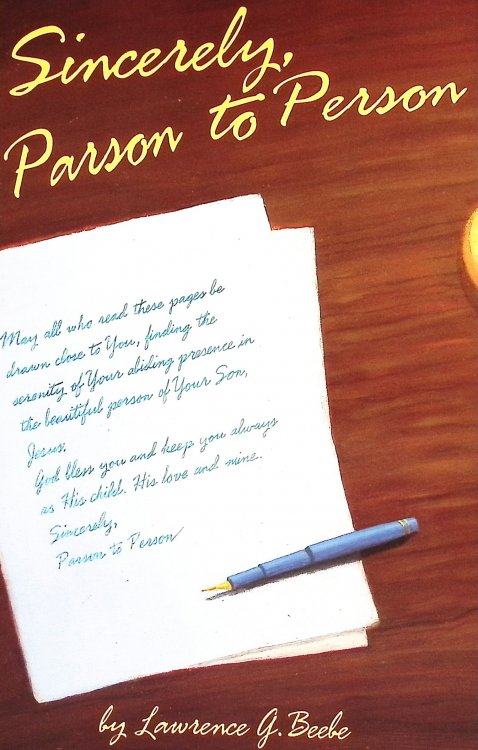 Sincerely,
Parson to Person
May all who read these pages be
drawn close to You, finding the
serenity of Your abiding presence in
the beautiful person of Your Son,
Jesus.
God bless you and keep you always
as His child. His love and mine.
Sincerely,
Parson to Person
by Lawrence G. Beebe